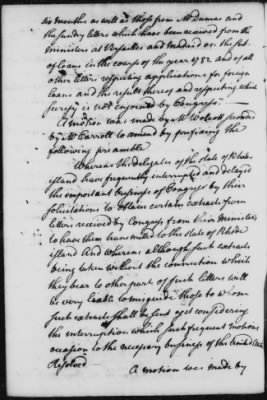 six months as well as those from Mr Dumas and
the sundry letters which have been received from the
ministers at Versailles and Madrid on the sub.
of loans in the course of the year 1782. and of all
other letters respecting applications for foreign
loans and the result thereof and respecting which
secresy is not enjoined by Congress."
A motion was made by Mr Wolcott seconded
by Mr Carroll to amend by prefixing the
following preamble
Whereas the delegates of the state of Rhode
island have frequently interrupted and delayed
the important business of Congress by their
solicitations to obtain certain extracts from
letters received by Congress from their Ministers
to have them transmitted to the state of Rhode
island And whereas although such extracts
being taken without the connection which
they bear to other parts of such letters will
be very liable to misguide those to whom
such extracts shall be sent yet considering
the interruption which such frequent motions
occasion to the necessary business of the United States
Resolved
A motion was made by